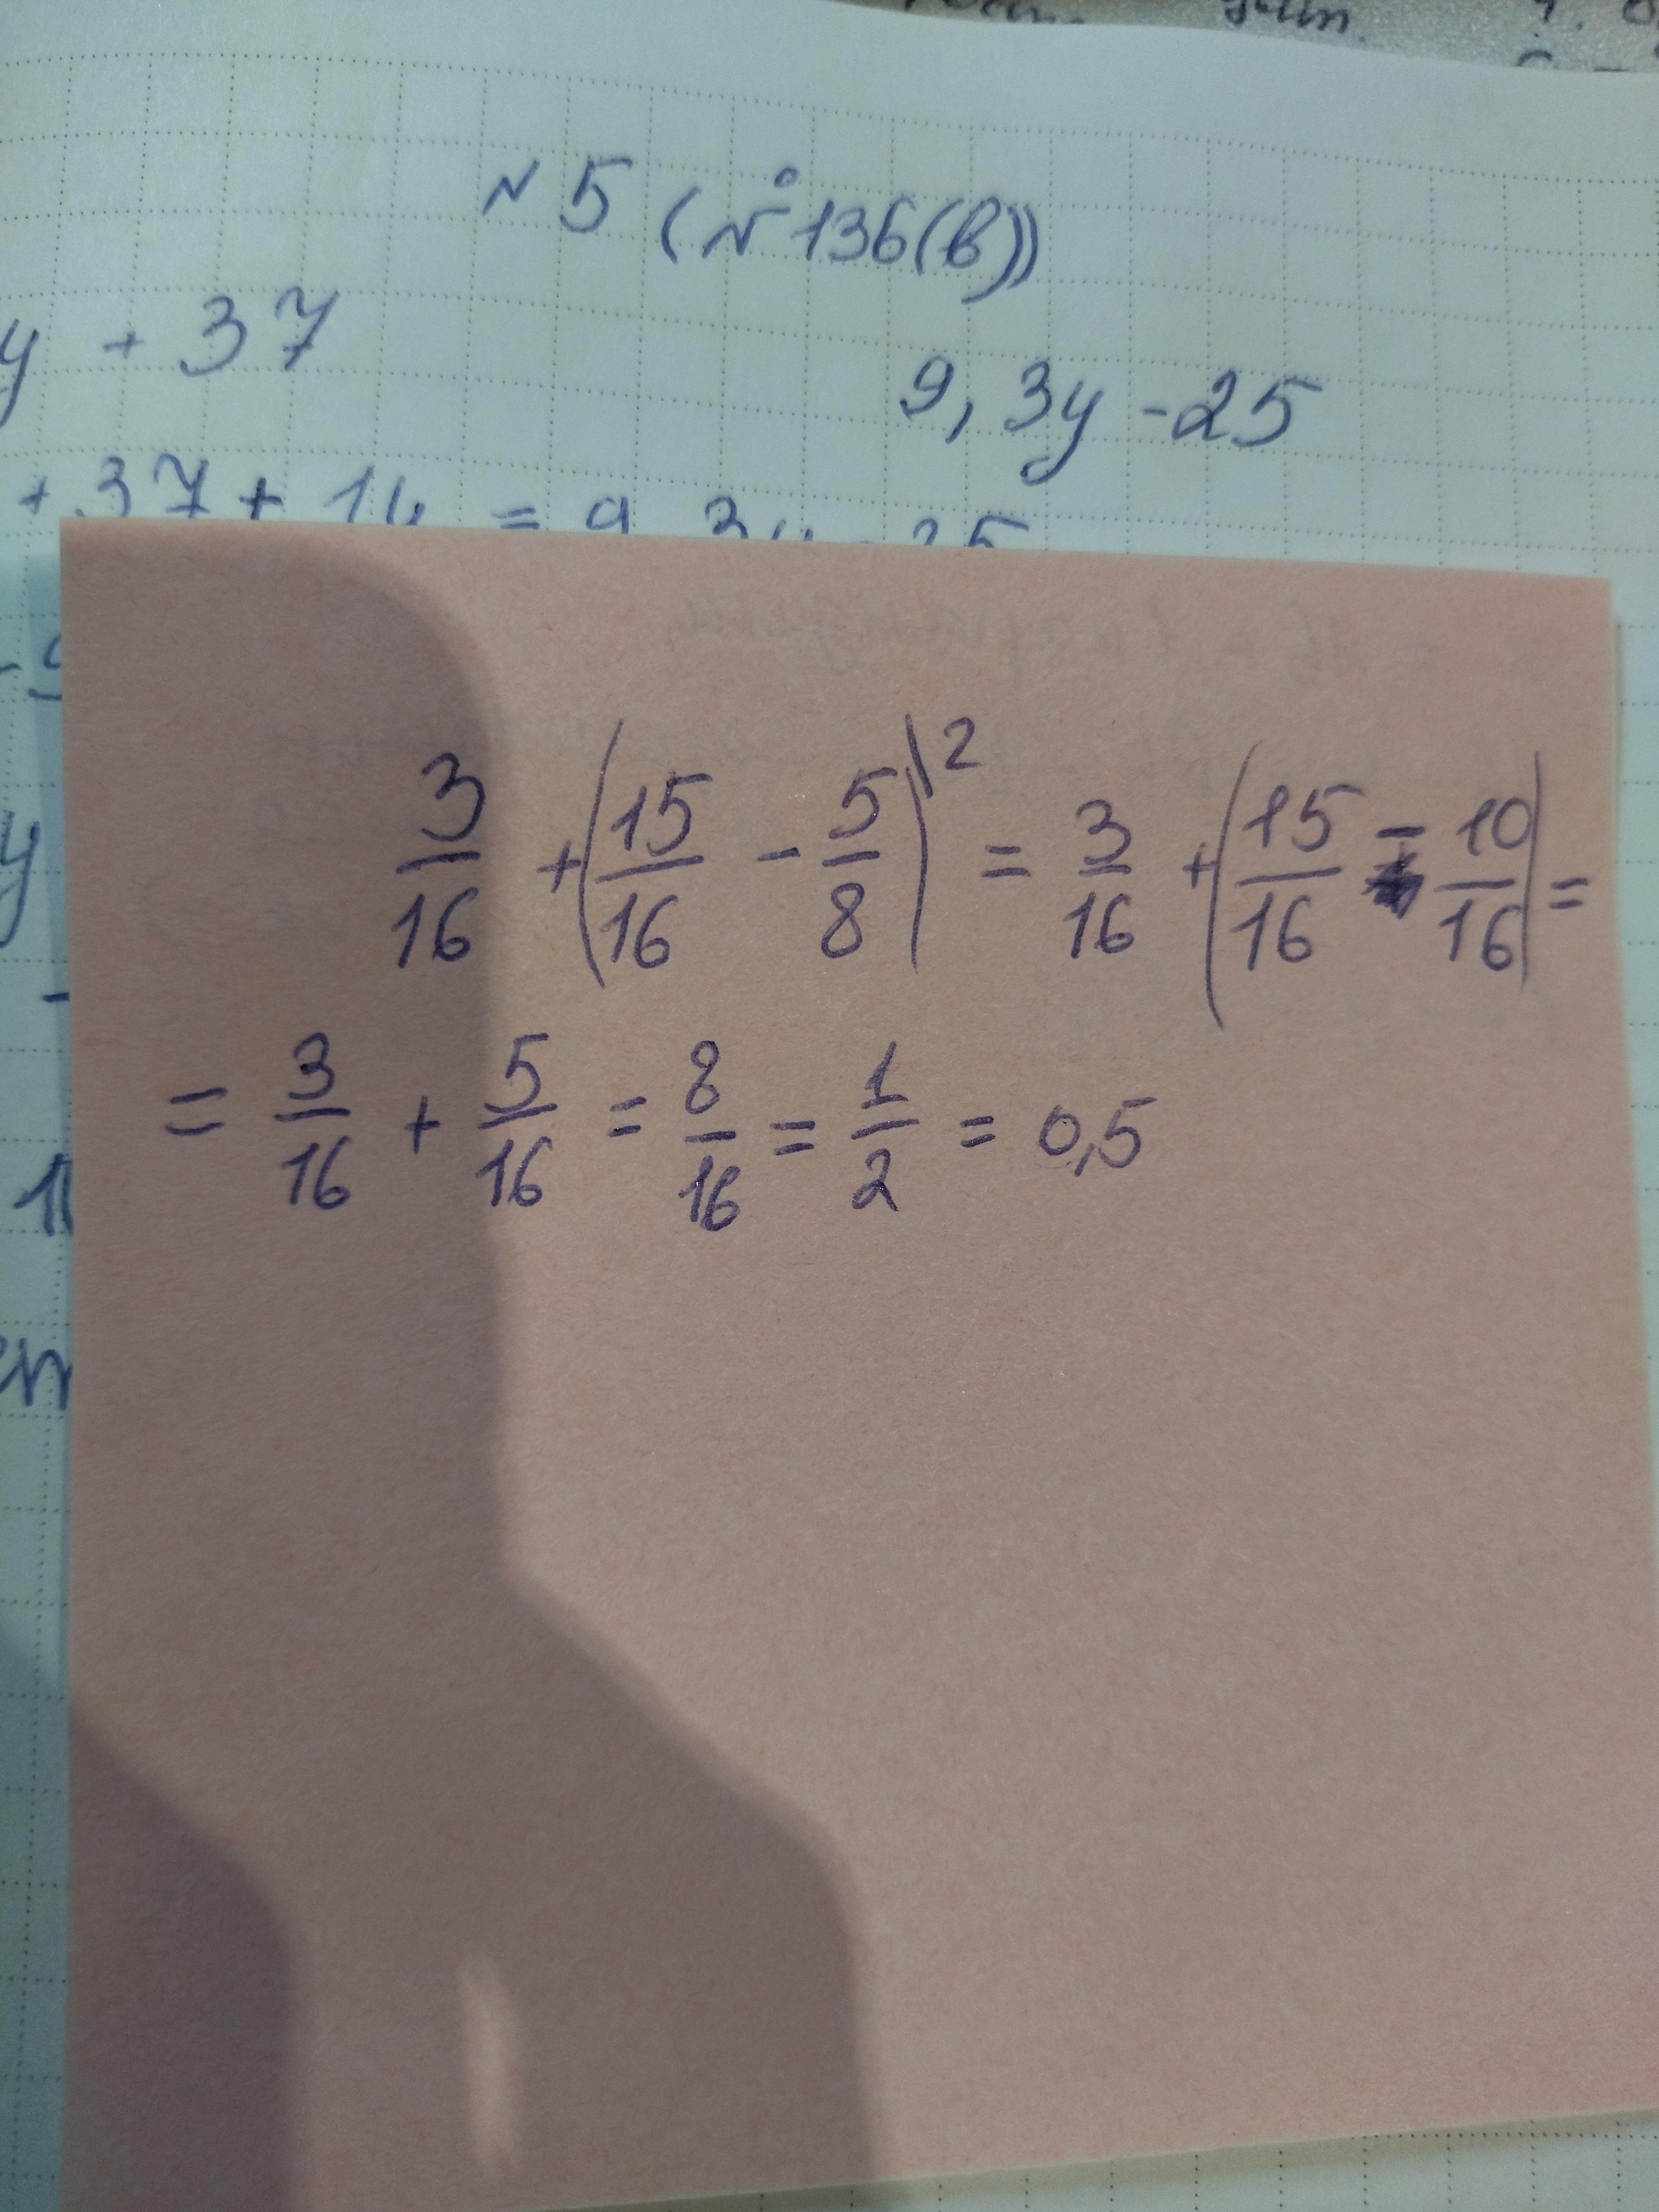 №5 (№136(в))
y + 37
9,3y - 25
+ 37 + 14 = 9,3y - 25
y
3/16 + (15/16 - 5/8)² = 3/16 + (15/16 - 10/16) =
= 3/16 + 5/16 = 8/16 = 1/2 = 0,5